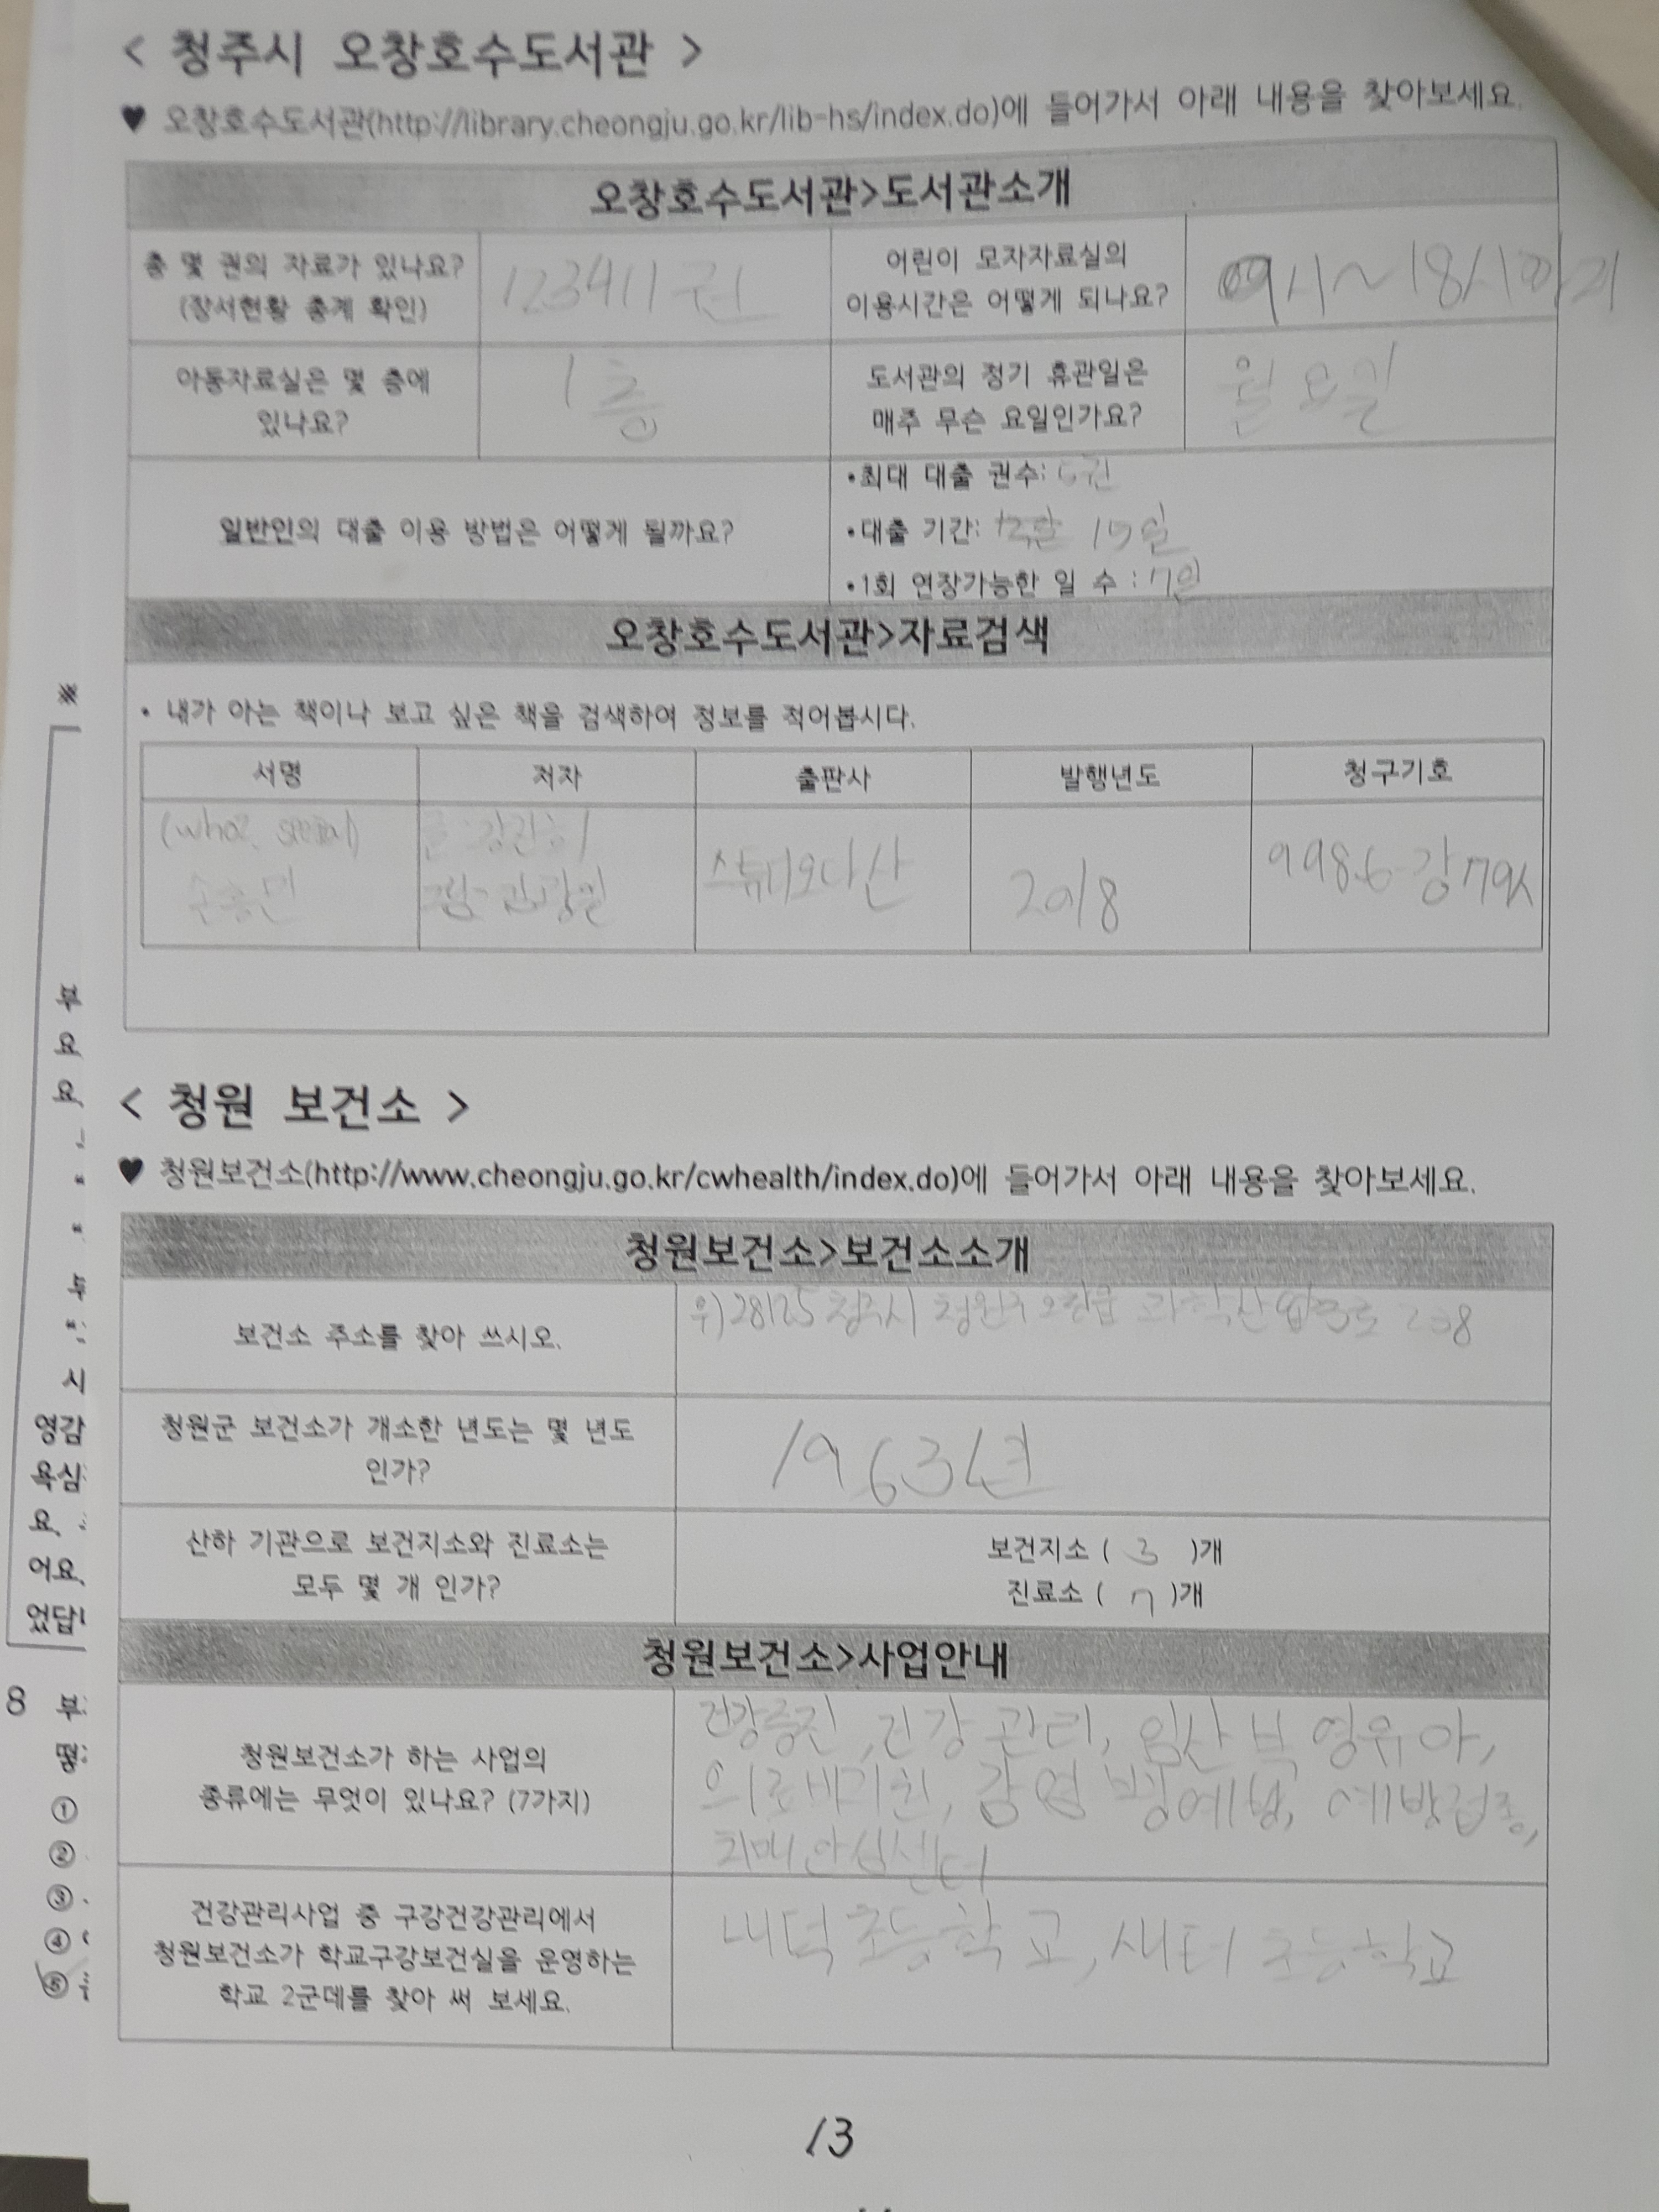 < 청주시 오창호수도서관 >
♥ 오창호수도서관(http://library.cheongju.go.kr/lib-hs/index.do)에 들어가서 아래 내용을 찾아보세요.
오창호수도서관>도서관소개
총 몇 권의 자료가 있나요?
(장서현황 총계 확인)
123411권
어린이 모자자료실의
이용시간은 어떻게 되나요?
09시~18시까지
아동자료실은 몇 층에
있나요?
1층
도서관의 정기 휴관일은
매주 무슨 요일인가요?
월요일
일반인의 대출 이용 방법은 어떻게 될까요?
•최대 대출 권수: 권
•대출 기간: 15일
•1회 연장가능한 일 수 : 7일
오창호수도서관>자료검색
• 내가 아는 책이나 보고 싶은 책을 검색하여 정보를 적어봅시다.
서명 저자 출판사 발행년도 청구기호
(who? special)
손흥민
글:강진희
스튜디오다산
2018
998.6-강79ㅅ
< 청원 보건소 >
♥ 청원보건소(http://www.cheongju.go.kr/cwhealth/index.do)에 들어가서 아래 내용을 찾아보세요.
청원보건소>보건소소개
보건소 주소를 찾아 쓰시오.
우)28125 청주시 청원구 오창읍 과학산업3로 238
청원군 보건소가 개소한 년도는 몇 년도
인가?
1963년
산하 기관으로 보건지소와 진료소는
모두 몇 개 인가?
보건지소 ( 3 )개
진료소 ( 7 )개
청원보건소>사업안내
청원보건소가 하는 사업의
종류에는 무엇이 있나요? (7가지)
건강증진, 건강관리, 임산부 영유아,
의료비지원, 감염병예방, 예방접종,
치매안심센터
건강관리사업 중 구강건강관리에서
청원보건소가 학교구강보건실을 운영하는
학교 2군데를 찾아 써 보세요.
내덕초등학교, 새터초등학교
13
※
부
요
요.
시
영감
욕심
요.
어요.
었답니
8 부
떻
①
②
③
④
⑤